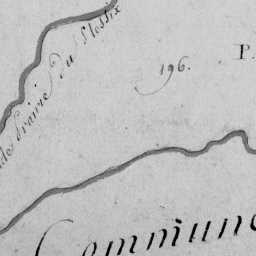 de prairie du Plessix
196.
P.
Commune